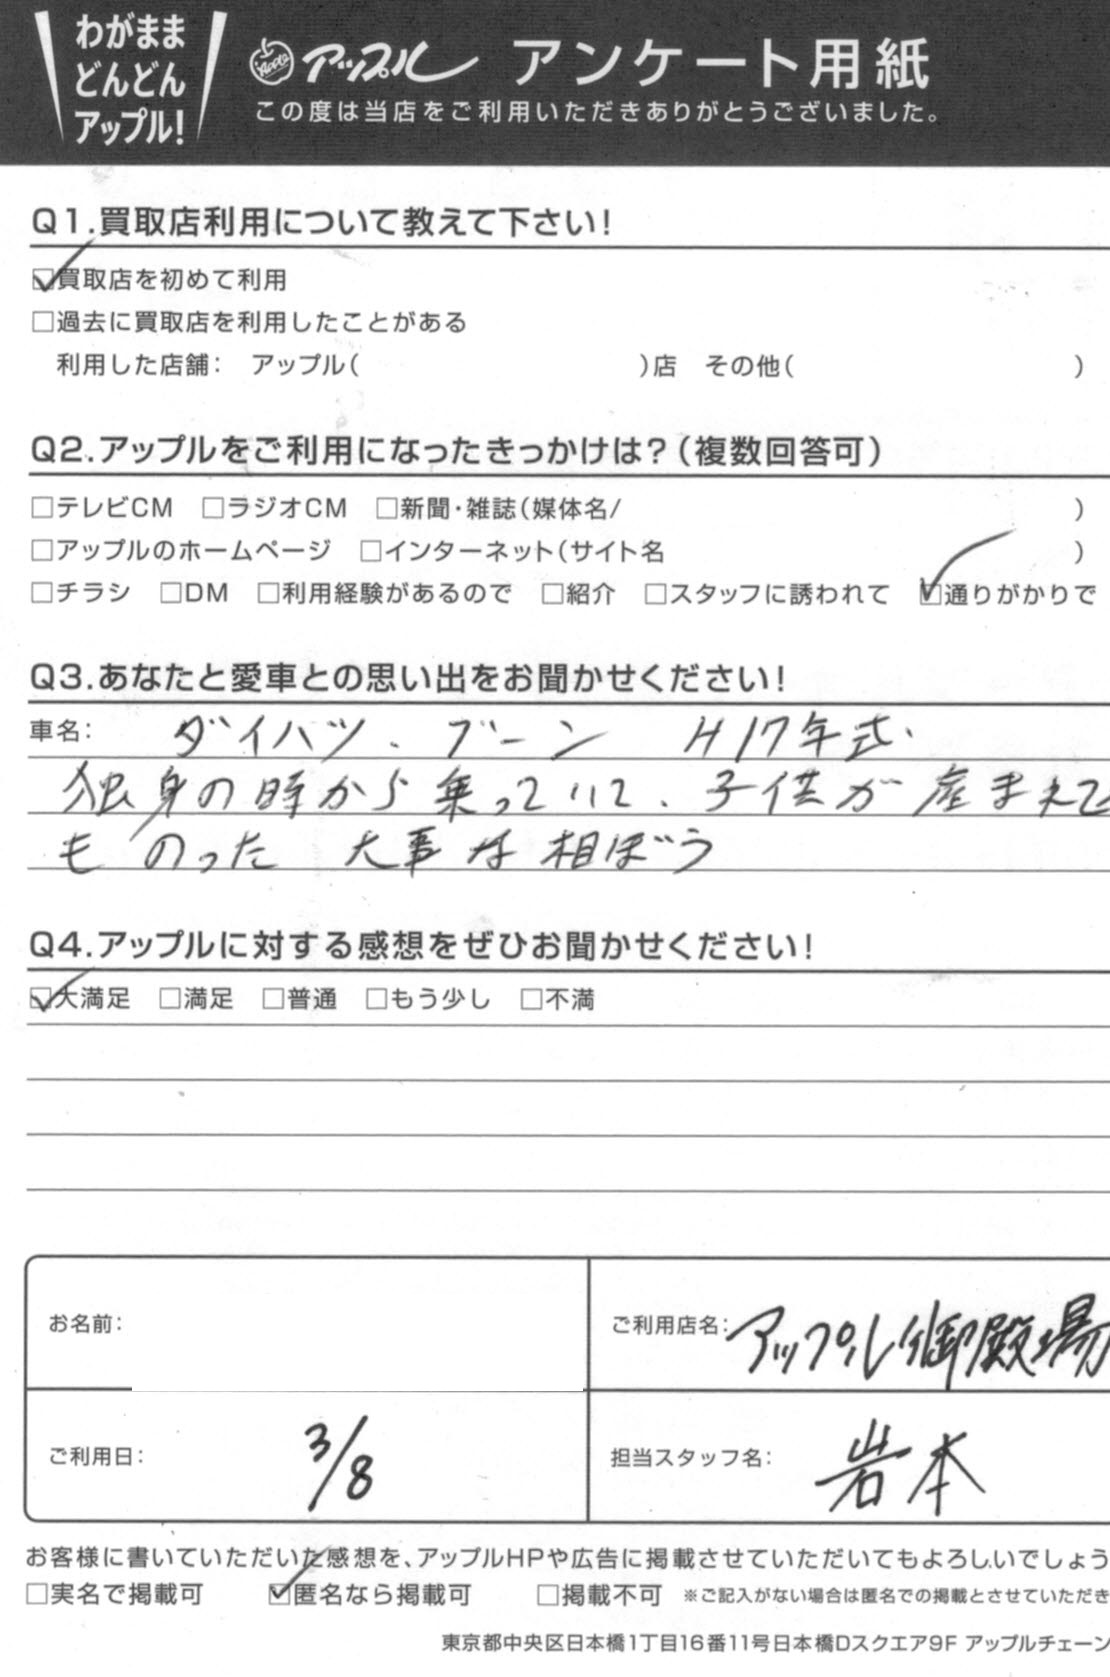 わがまま
どんどん
アップル!
Apple アップル アンケート用紙
この度は当店をご利用いただきありがとうございました。
Q1.買取店利用について教えて下さい!
☑買取店を初めて利用
□過去に買取店を利用したことがある
利用した店舗: アップル( )店 その他( )
Q2.アップルをご利用になったきっかけは?(複数回答可)
□テレビCM □ラジオCM □新聞・雑誌(媒体名/ )
□アップルのホームページ □インターネット(サイト名 )
□チラシ □DM □利用経験があるので □紹介 □スタッフに誘われて ☑通りがかりで
Q3.あなたと愛車との思い出をお聞かせください!
車名: ダイハツ、ブーン H17年式.
独身の時から乗っていて、子供が産まれて
ものった 大事な相ぼう
Q4.アップルに対する感想をぜひお聞かせください!
☑大満足 □満足 □普通 □もう少し □不満
お名前:
ご利用店名: アップル御殿場
ご利用日: 3/8
担当スタッフ名: 岩本
お客様に書いていただいた感想を、アップルHPや広告に掲載させていただいてもよろしいでしょう
□実名で掲載可 ☑匿名なら掲載可 □掲載不可 ※ご記入がない場合は匿名での掲載とさせていただき
東京都中央区日本橋1丁目16番11号日本橋Dスクエア9F アップルチェーン